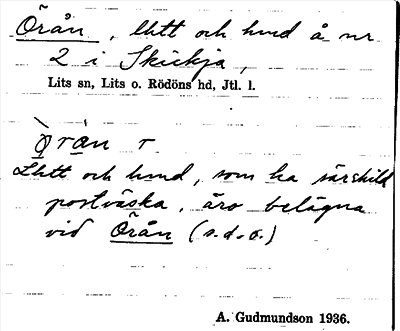 Örån, lhtt och hmd å nr
2 i Skickja,
Lits sn, Lits o. Rödöns hd, Jtl. l.
ò̱ra̱n r
Lhtt och hmd, som ha särskild
postväska, äro belägna
vid Örån (s.d.o.)
A. Gudmundson 1936.